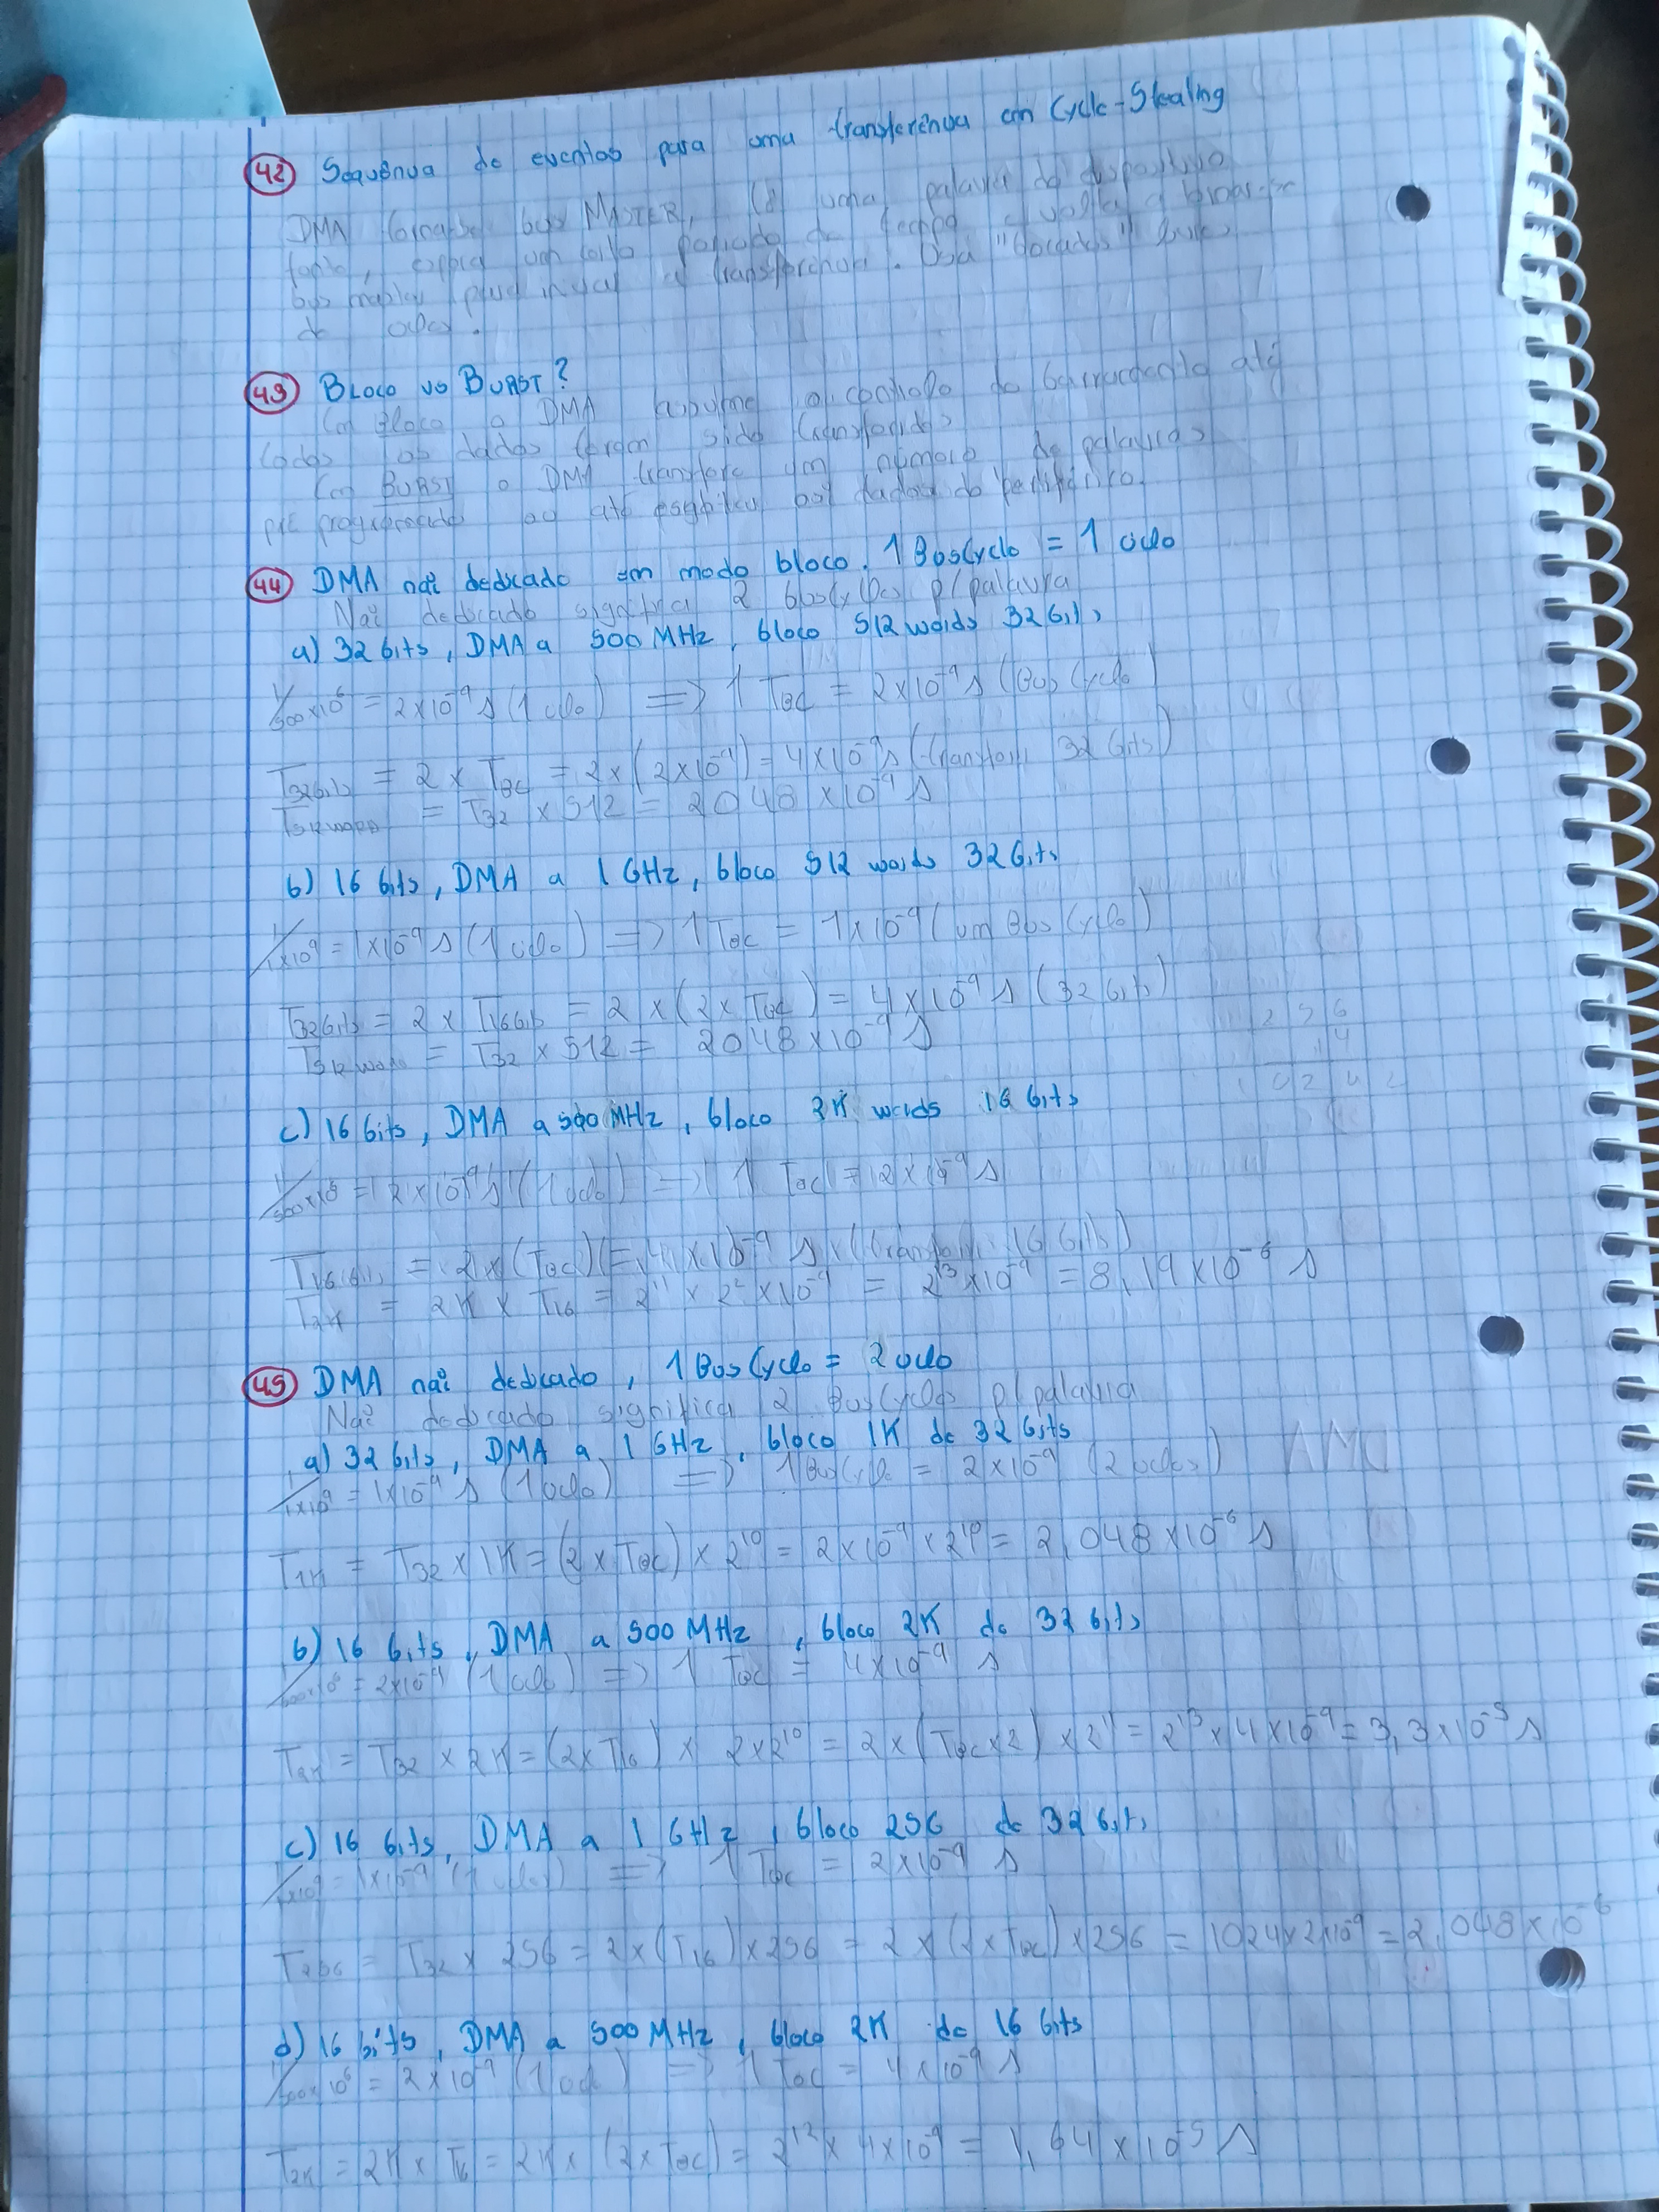 42 Sequência de eventos para uma transferência em Cycle-Stealing
DMA torna-se bus MASTER, lê uma palavra do dispositivo
fonte, espera um certo período de tempo e volta a tornar-se
bus master para iniciar a transferência. Usa "bocados" livres
do
43 BLOCO vs BURST?
Em Bloco o DMA assume o controlo do barramento até
todos os dados terem sido transferidos
Em BURST o DMA transfere um número de palavras
pré programado ou até esgotar os dados do periférico.
44 DMA não dedicado em modo bloco. 1 BusCyclo = 1 ciclo
Não dedicado significa 2 busCyclos p/ palavra
a) 32 bits, DMA a 500 MHz, bloco 512 words 32 bits
1/500x10^6 = 2x10^-9 s (1 ciclo) => 1 TBC = 2x10^-9 s (Bus Cyclo)
T32bits = 2 x TBC = 2x(2x10^-9) = 4x10^-9 s (transferir 32 bits)
T512words = T32 x 512 = 2048 x10^-9 s
b) 16 bits, DMA a 1 GHz, bloco 512 words 32 bits
1/1x10^9 = 1x10^-9 s (1 ciclo) => 1 TBC = 1x10^-9 (um Bus Cyclo)
T32bits = 2 x T16bits = 2 x (2 x TBC) = 4x10^-9 s (32 bits)
T512words = T32 x 512 = 2048x10^-9 s
2 5 6
4
1 0 2 4
c) 16 bits, DMA a 500 MHz, bloco 2K words 16 bits
1/500x10^6 = 2x10^-9 s (1 ciclo) => 1 TBC = 2x10^-9 s
T16bits = 2x(TBC) = 4x10^-9 s (transferir 16 bits)
T2K = 2K x T16 = 2^11 x 2^2 x10^-9 = 2^13 x10^-9 = 8,19x10^-6 s
45 DMA não dedicado, 1 BusCyclo = 2 ciclo
Não dedicado significa 2 BusCyclos p/ palavra
a) 32 bits, DMA a 1 GHz, bloco 1K de 32 bits
1/1x10^9 = 1x10^-9 s (1 ciclo) => 1 BusCyclo = 2x10^-9 (2 ciclos)
T1K = T32 x 1K = (2 x TBC) x 2^10 = 2x10^-9 x 2^10 = 2,048x10^-6 s
b) 16 bits, DMA a 500 MHz, bloco 2K de 32 bits
1/500x10^6 = 2x10^-9 (1 ciclo) => 1 TBC = 4x10^-9 s
T2K = T32 x 2K = (2xT16) x 2x2^10 = 2x(TBCx2) x 2^11 = 2^13 x 4x10^-9 = 3,3x10^-5 s
c) 16 bits, DMA a 1 GHz, bloco 256 de 32 bits
1/1x10^9 = 1x10^-9 (1 ciclo) => 1 TBC = 2x10^-9 s
T256 = T32 x 256 = 2x(T16)x256 = 2 x (2xTBC) x256 = 1024x2x10^-9 = 2,048x10^-6
d) 16 bits, DMA a 500 MHz, bloco 2K de 16 bits
1/500x10^6 = 2x10^-9 (1 ciclo) => 1 TBC = 4x10^-9 s
T2K = 2K x T16 = 2K x (2xTBC) = 2^12 x 4x10^-9 = 1,64x10^-5 s